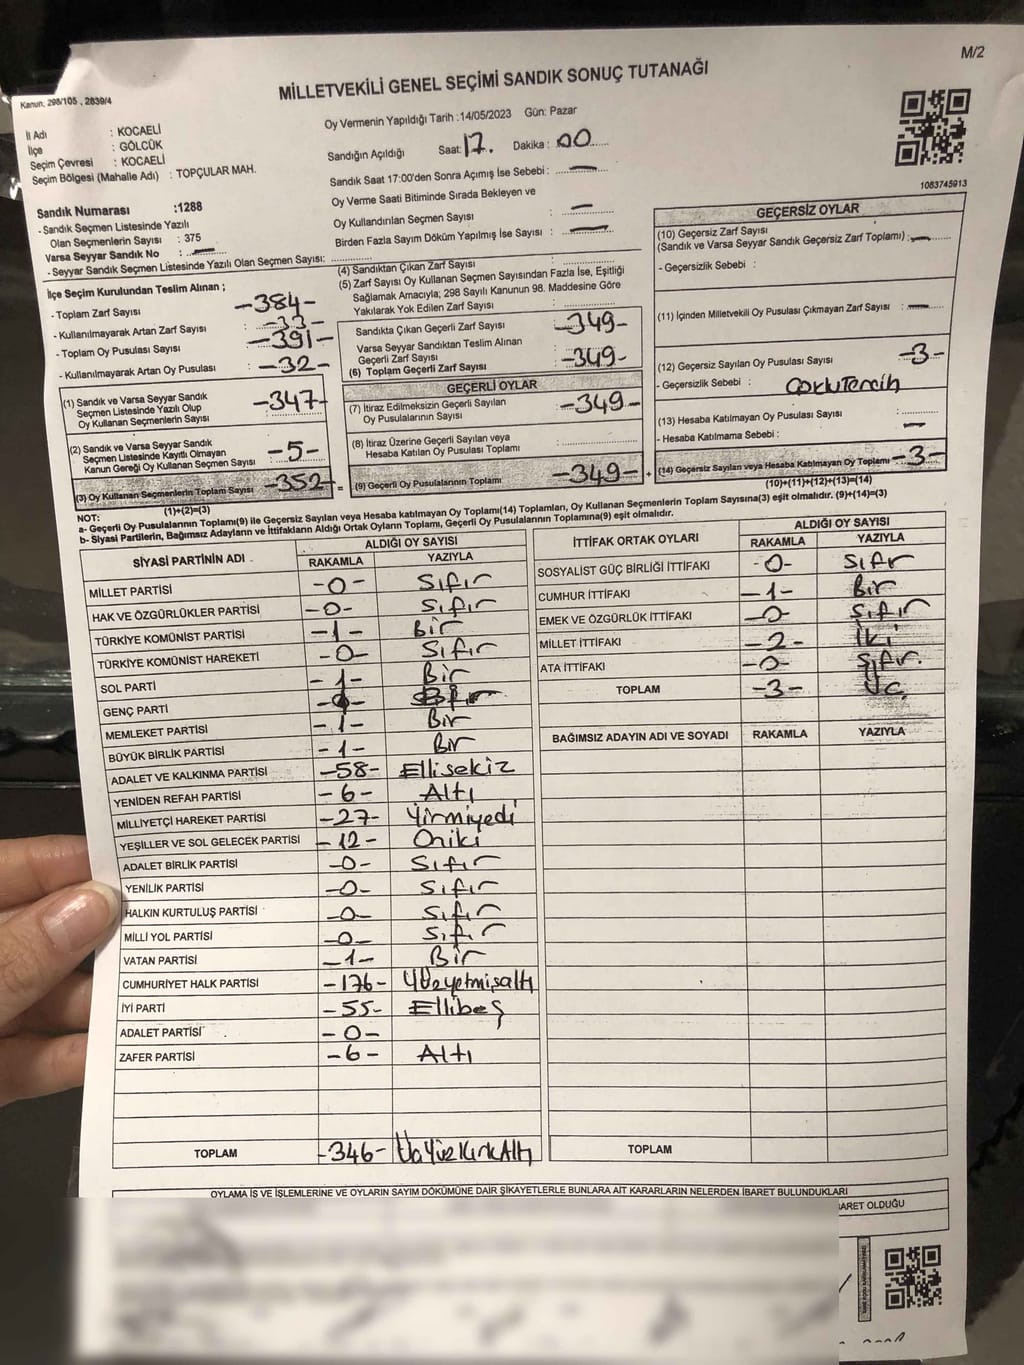 M/2
Kanun, 298/105 , 2839/4
MİLLETVEKİLİ GENEL SEÇİMİ SANDIK SONUÇ TUTANAĞI
İl Adı : KOCAELİ
İlçe : GÖLCÜK
Seçim Çevresi : KOCAELİ
Seçim Bölgesi (Mahalle Adı) : TOPÇULAR MAH.
Oy Vermenin Yapıldığı Tarih :14/05/2023 Gün: Pazar
Sandığın Açıldığı Saat: 17. Dakika : 00
Sandık Saat 17:00'den Sonra Açımış İse Sebebi : —
Oy Verme Saati Bitiminde Sırada Bekleyen ve
Oy Kullandırılan Seçmen Sayısı : —
Birden Fazla Sayım Döküm Yapılmış İse Sayısı : —
1083745913
Sandık Numarası :1288
- Sandık Seçmen Listesinde Yazılı
Olan Seçmenlerin Sayısı : 375
Varsa Seyyar Sandık No : —
- Seyyar Sandık Seçmen Listesinde Yazılı Olan Seçmen Sayısı:
İlçe Seçim Kurulundan Teslim Alınan ;
- Toplam Zarf Sayısı : -384-
- Kullanılmayarak Artan Zarf Sayısı : -33-
- Toplam Oy Pusulası Sayısı : -391-
- Kullanılmayarak Artan Oy Pusulası : -32-
(1) Sandık ve Varsa Seyyar Sandık
Seçmen Listesinde Yazılı Olup
Oy Kullanan Seçmenlerin Sayısı : -347-
(2) Sandık ve Varsa Seyyar Sandık
Seçmen Listesinde Kayıtlı Olmayan
Kanun Gereği Oy Kullanan Seçmen Sayısı : -5-
(3) Oy Kullanan Seçmenlerin Toplam Sayısı : -352-
(1)+(2)=(3)
(4) Sandıktan Çıkan Zarf Sayısı :
(5) Zarf Sayısı Oy Kullanan Seçmen Sayısından Fazla İse, Eşitliği
Sağlamak Amacıyla; 298 Sayılı Kanunun 98. Maddesine Göre
Yakılarak Yok Edilen Zarf Sayısı :
Sandıkta Çıkan Geçerli Zarf Sayısı : -349-
Varsa Seyyar Sandıktan Teslim Alınan
Geçerli Zarf Sayısı :
(6) Toplam Geçerli Zarf Sayısı : -349-
GEÇERLİ OYLAR
(7) İtiraz Edilmeksizin Geçerli Sayılan
Oy Pusulalarının Sayısı : -349-
(8) İtiraz Üzerine Geçerli Sayılan veya
Hesaba Katılan Oy Pusulası Toplamı :
= (9) Geçerli Oy Pusulalarının Toplamı : -349- +
GEÇERSİZ OYLAR
(10) Geçersiz Zarf Sayısı
(Sandık ve Varsa Seyyar Sandık Geçersiz Zarf Toplamı) : —
- Geçersizlik Sebebi :
(11) İçinden Milletvekili Oy Pusulası Çıkmayan Zarf Sayısı : —
(12) Geçersiz Sayılan Oy Pusulası Sayısı : -3-
- Geçersizlik Sebebi : Çoklu Tercih
(13) Hesaba Katılmayan Oy Pusulası Sayısı :
- Hesaba Katılmama Sebebi : —
(14) Geçersiz Sayılan veya Hesaba Katılmayan Oy Toplamı : -3-
(10)+(11)+(12)+(13)=(14)
NOT:
a- Geçerli Oy Pusulalarının Toplamı(9) ile Geçersiz Sayılan veya Hesaba katılmayan Oy Toplamı(14) Toplamları, Oy Kullanan Seçmenlerin Toplam Sayısına(3) eşit olmalıdır. (9)+(14)=(3)
b- Siyasi Partilerin, Bağımsız Adayların ve İttifakların Aldığı Ortak Oyların Toplamı, Geçerli Oy Pusulalarının Toplamına(9) eşit olmalıdır.
SİYASİ PARTİNİN ADI ALDIĞI OY SAYISI
RAKAMLA YAZIYLA
MİLLET PARTİSİ -0- Sıfır
HAK VE ÖZGÜRLÜKLER PARTİSİ -0- Sıfır
TÜRKİYE KOMÜNİST PARTİSİ -1- Bir
TÜRKİYE KOMÜNİST HAREKETİ -0- Sıfır
SOL PARTİ -1- Bir
GENÇ PARTİ
MEMLEKET PARTİSİ -1- Bir
BÜYÜK BİRLİK PARTİSİ -1- Bir
ADALET VE KALKINMA PARTİSİ -58- Ellisekiz
YENİDEN REFAH PARTİSİ -6- Altı
MİLLİYETÇİ HAREKET PARTİSİ -27- Yirmiyedi
YEŞİLLER VE SOL GELECEK PARTİSİ -12- Oniki
ADALET BİRLİK PARTİSİ -0- Sıfır
YENİLİK PARTİSİ -0- Sıfır
HALKIN KURTULUŞ PARTİSİ -0- Sıfır
MİLLİ YOL PARTİSİ -0- Sıfır
VATAN PARTİSİ -1- Bir
CUMHURİYET HALK PARTİSİ -176- Yüzyetmişaltı
İYİ PARTİ -55- Ellibeş
ADALET PARTİSİ -0-
ZAFER PARTİSİ -6- Altı
TOPLAM -346- ÜçYüzKırkAltı
İTTİFAK ORTAK OYLARI ALDIĞI OY SAYISI
RAKAMLA YAZIYLA
SOSYALİST GÜÇ BİRLİĞİ İTTİFAKI -0- Sıfır
CUMHUR İTTİFAKI -1- Bir
EMEK VE ÖZGÜRLÜK İTTİFAKI -0- Sıfır
MİLLET İTTİFAKI -2- İki
ATA İTTİFAKI -0- Sıfır.
TOPLAM -3- Üç.
BAĞIMSIZ ADAYIN ADI VE SOYADI RAKAMLA YAZIYLA
TOPLAM
OYLAMA İŞ VE İŞLEMLERİNE VE OYLARIN SAYIM DÖKÜMÜNE DAİR ŞİKAYETLERLE BUNLARA AİT KARARLARIN NELERDEN İBARET BULUNDUKLARI
BARET OLDUĞU